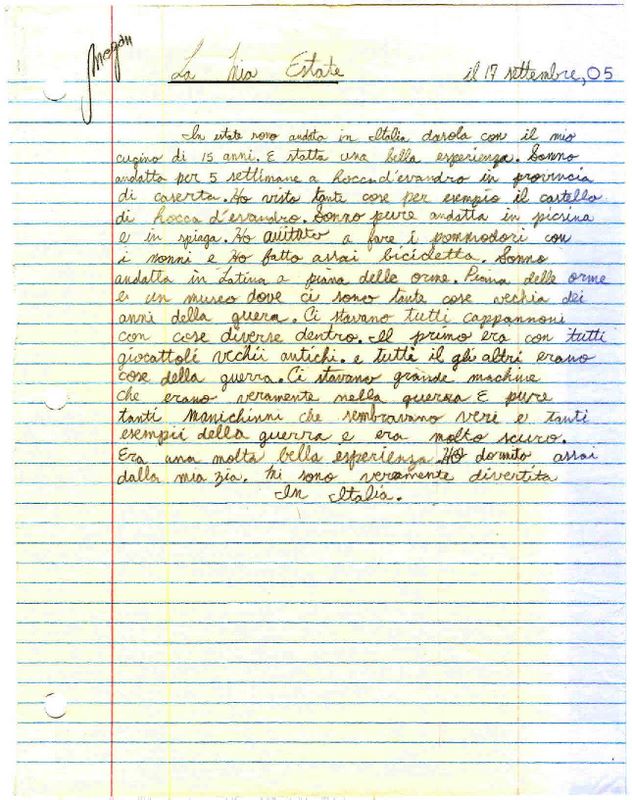 Megan
La Mia Estate
il 17 settembre, 05
In estate sono andata in Italia dasola con il mio
cugino di 15 anni. E statta una bella esperienza. Sonno
andatta per 5 settimane a Rocca d'evandro in provincia
di caserta. Ho visto tante cose per esempio il castello
di Rocca d'evandro. Sonno pure andatta in picsina
e in spiaga. Ho auittato a fare i pommodori con
i nonni e Ho fatto assai bicicletta. Sonno
andatta in Latina a piana delle orme. Piana delle orme
e un museo dove ci sono tante cose vechia dei
anni della guera. Ci stavano tutti cappannoni
con cose diverse dentro. Il primo era con tutti
giocattoli vechii antichi. e tutti il gli altri erano
cose della guerra. Ci stavano grande machine
che erano veramente nella guerra E pure
tanti manichinni che sembravano veri e tanti
esempii della guerra e era molto scuro.
Era una molta bella esperienza. Ho dormito assai
dalla mia zia. Mi sono veramente divertita
In Italia.